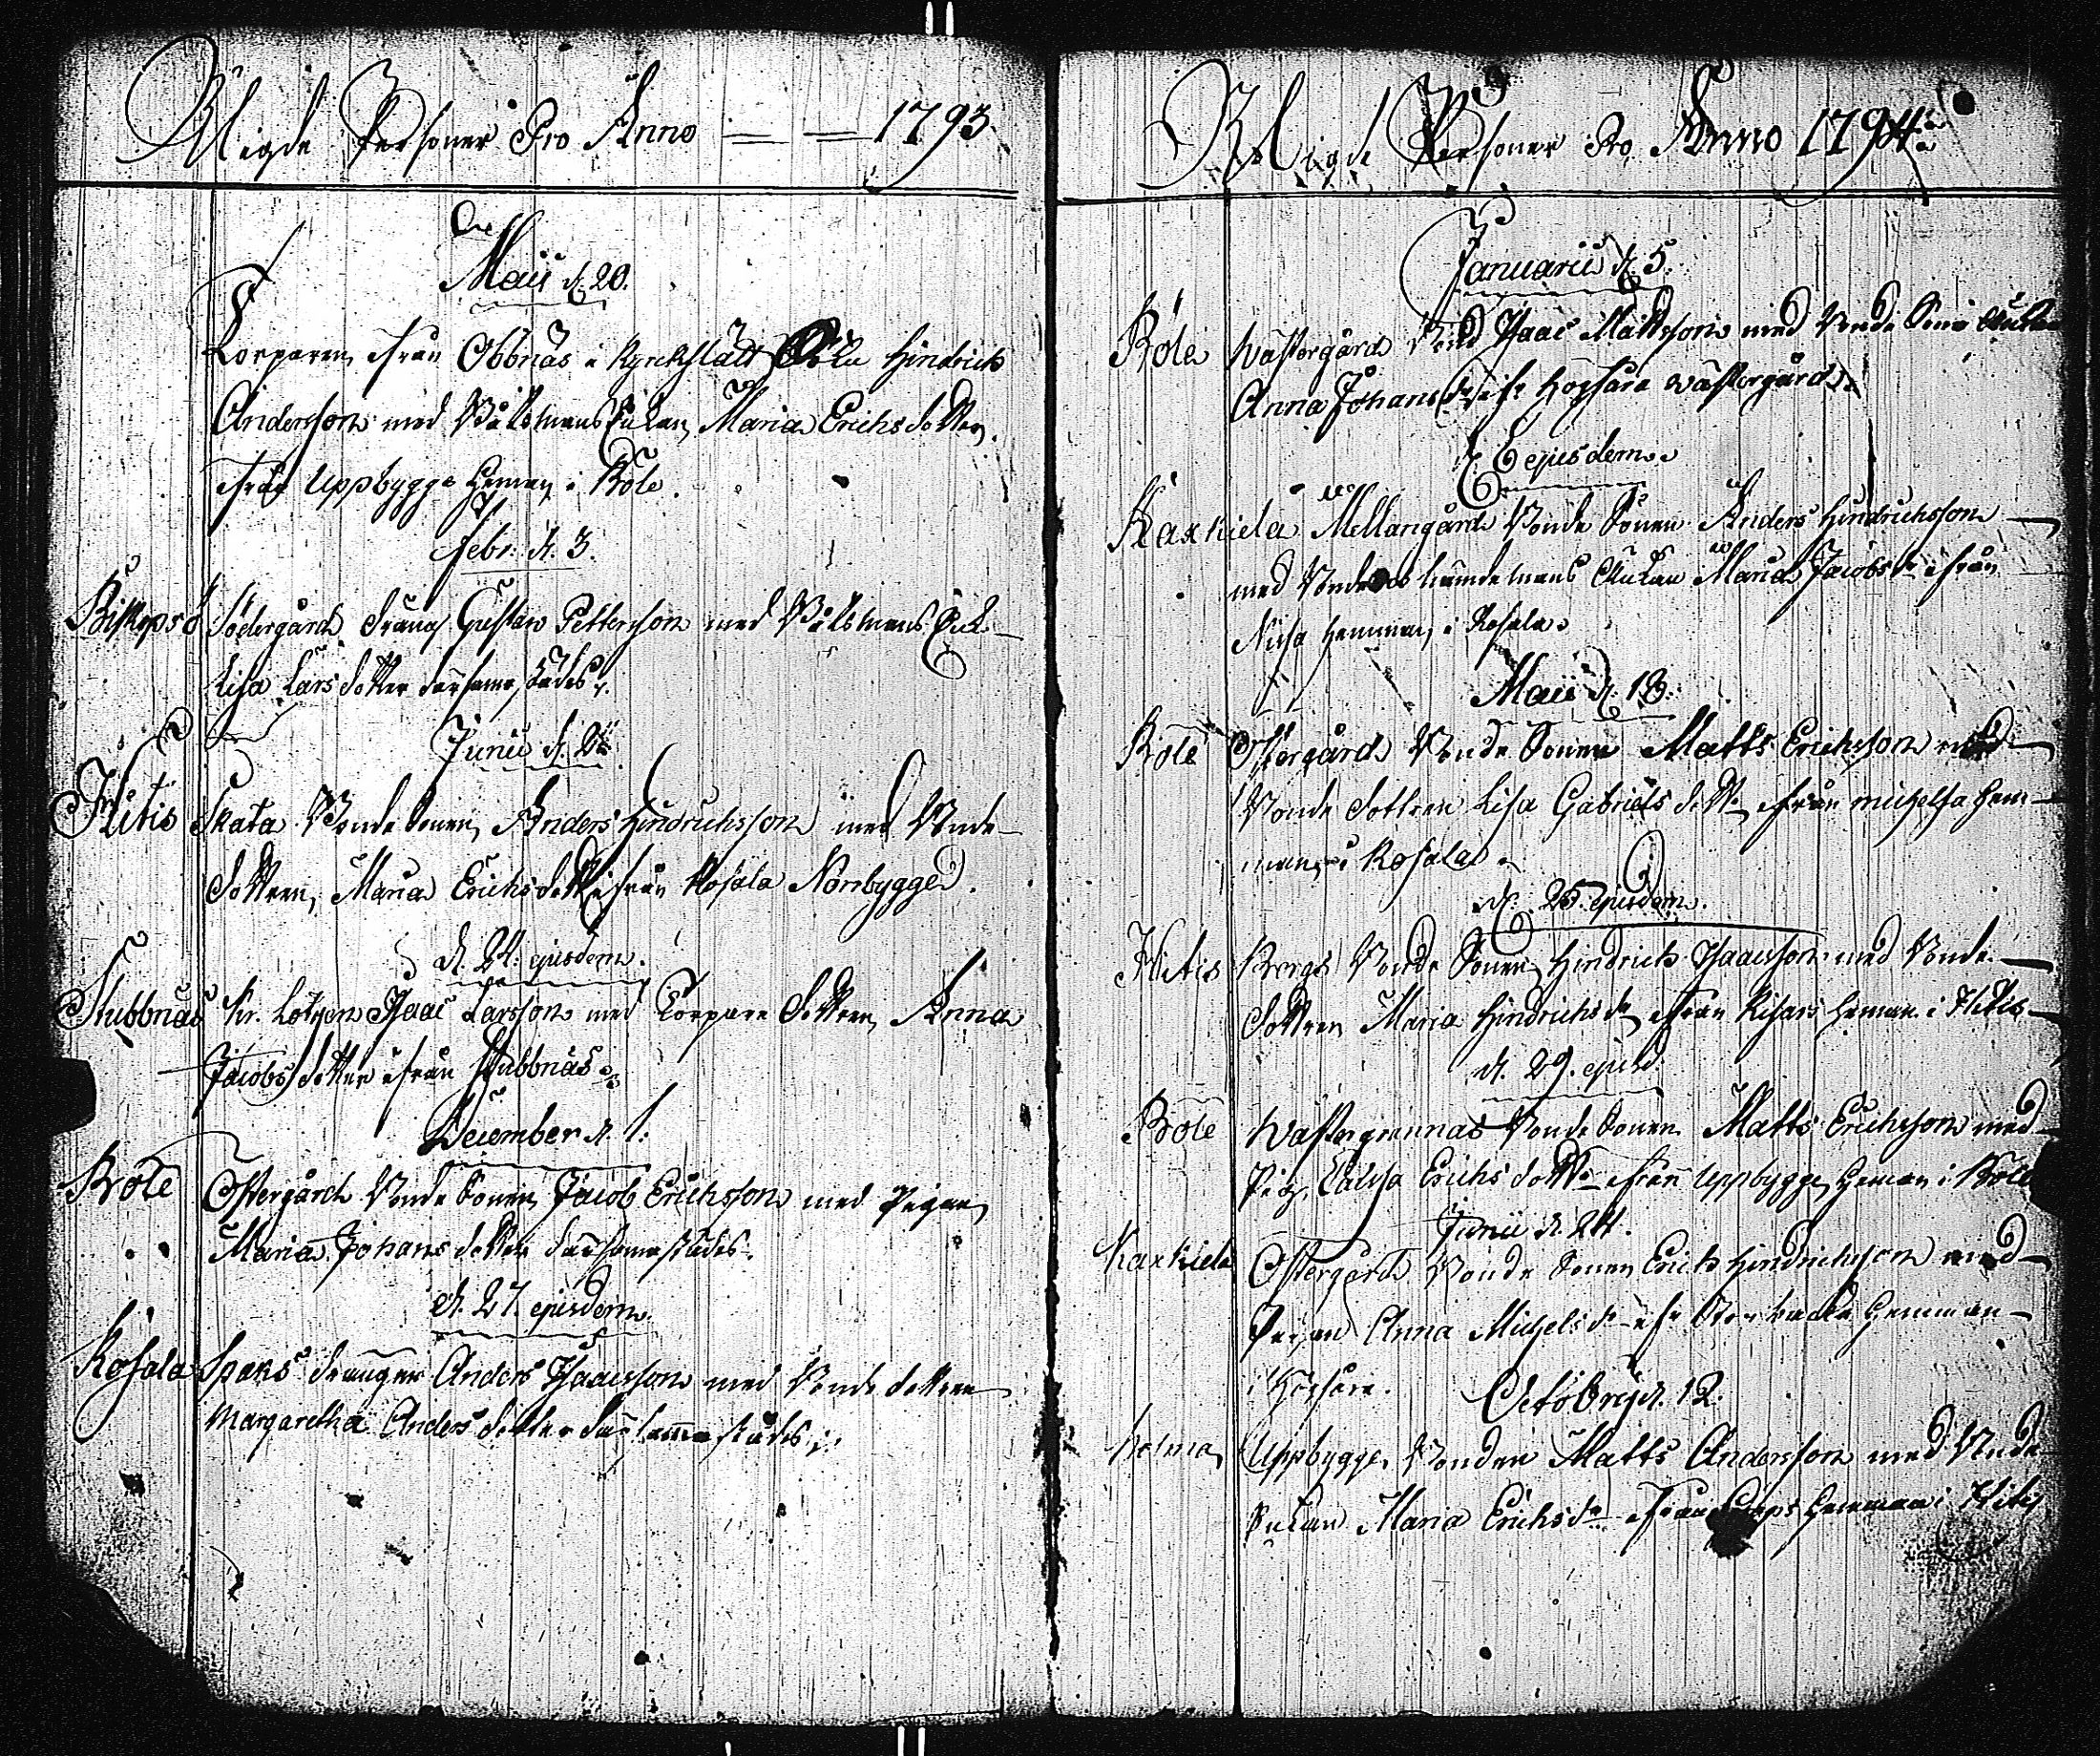 Wigde Personer Pro Anno 1793
Maii d. 20.
Torparen ifrån Obbnäs i Kyrckslätt Hindrich
Andersson med Båtsmans Enkan Maria Erichs dotter
ifrån Uppbygge Heman i Böle.
Febr: d. 3.
Biskopsö Södergårds Dräng Gustav Pettersson med Båtsmans Enk
Lisa Lars dotter därsammastädes
Junii d.
Hitis Skata Bonde Sonen Anders Hindrichsson med Bonde
dottren Maria Erichs dott ifrån Rosala Norrbygge.
d. 24. ejusdem.
Stubbnäs Kr. Lotsen Isaac Larsson med Torpare dottren Anna
Jacobs dotter ifrån Stubbnäs
December d. 1.
Böle Östergårds Bonde Sonen Jacob Erichsson med Pigan
Maria Johans dotter därsammastädes.
d. 27. ejusdem.
Rosala Spaks drängen Anders Isaacsson med Bonde dottren
Margaretha Anders dotter därsammastädes
Wigde Personer Pro Anno 1794
Januarii d. 5.
Böle Wästergårds Bond Isaac Mattsson med Bonde Enkan
Anna Johans dr ifr Högsåra Wästergård
d. 6 ejusdem
Kaxkiela Mellangårds Bonde Sonen Anders Hindrichsson
med Bonde Nämdemans Enkan Maria Jacobs dr ifrån
Nissa Hemman i Rosala
Maii d. 18.
Böle Östergårds Bonde Sonen Matts Erichsson med
Bonde dottren Lisa Gabriels dottr ifrån Michelsa Hem-
man i Rosala
d. 25. ejusdem.
Hitis Bergs Bonde Sonen Hindrich Isaacsson med Bonde
dottren Maria Hindrichs dr ifrån Heman i Hitis
d. 29. ejusd.
Böle Wästergrannas Bonde Sonen Matts Erichsson med
Pig. Caisa Erichs dottr ifrån Uppbygge Heman i Böle
Junii d. 24.
Kaxkiela Östergårds Bonde Sonen Erich Hindrichsson med
Pigan Anna Michels dr ifr Hemman
i Högsåra.
Octobris d. 12.
Holma Uppbygge Bonden Matts Andersson med Bonde
Enkan Maria Erichs dr ifrån Hemman i Hitis